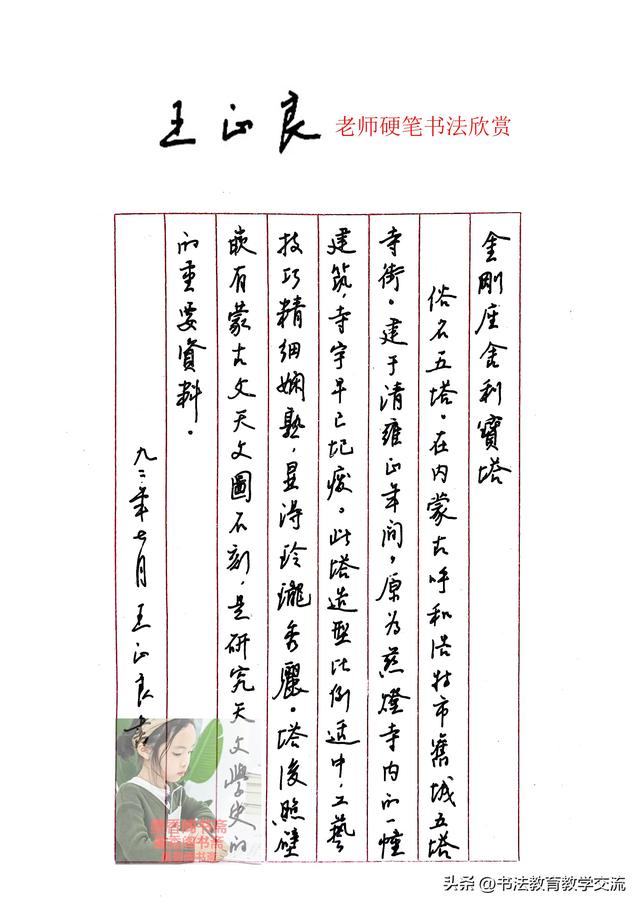 王正良 老师硬笔书法欣赏
金剛座舍利寶塔
俗名五塔。在内蒙古呼和浩特市舊城五塔
寺街。建于清雍正年间，原为慈燈寺内的一幢
建筑，寺宇早已圮废。此塔造型比例适中，工藝
技巧精细娴熟，显得玲瓏秀麗。塔後照壁
嵌有蒙古文天文圖石刻，是研究天文學史的
的重要資料。
九二年七月王正良書
头条 @书法教育教学交流